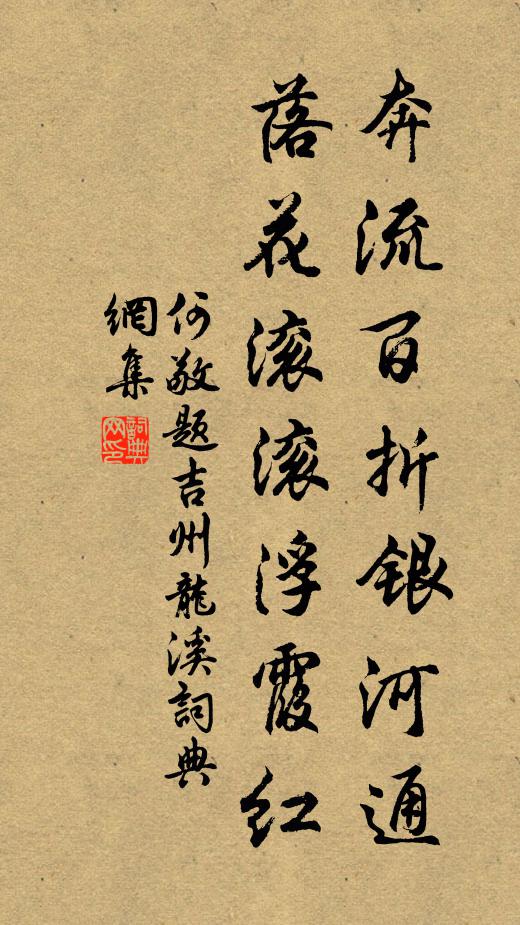 奔流百折銀河通
落花滚滚浮霞红
何敬题吉州龍溪詞典
網集
詞典
网印